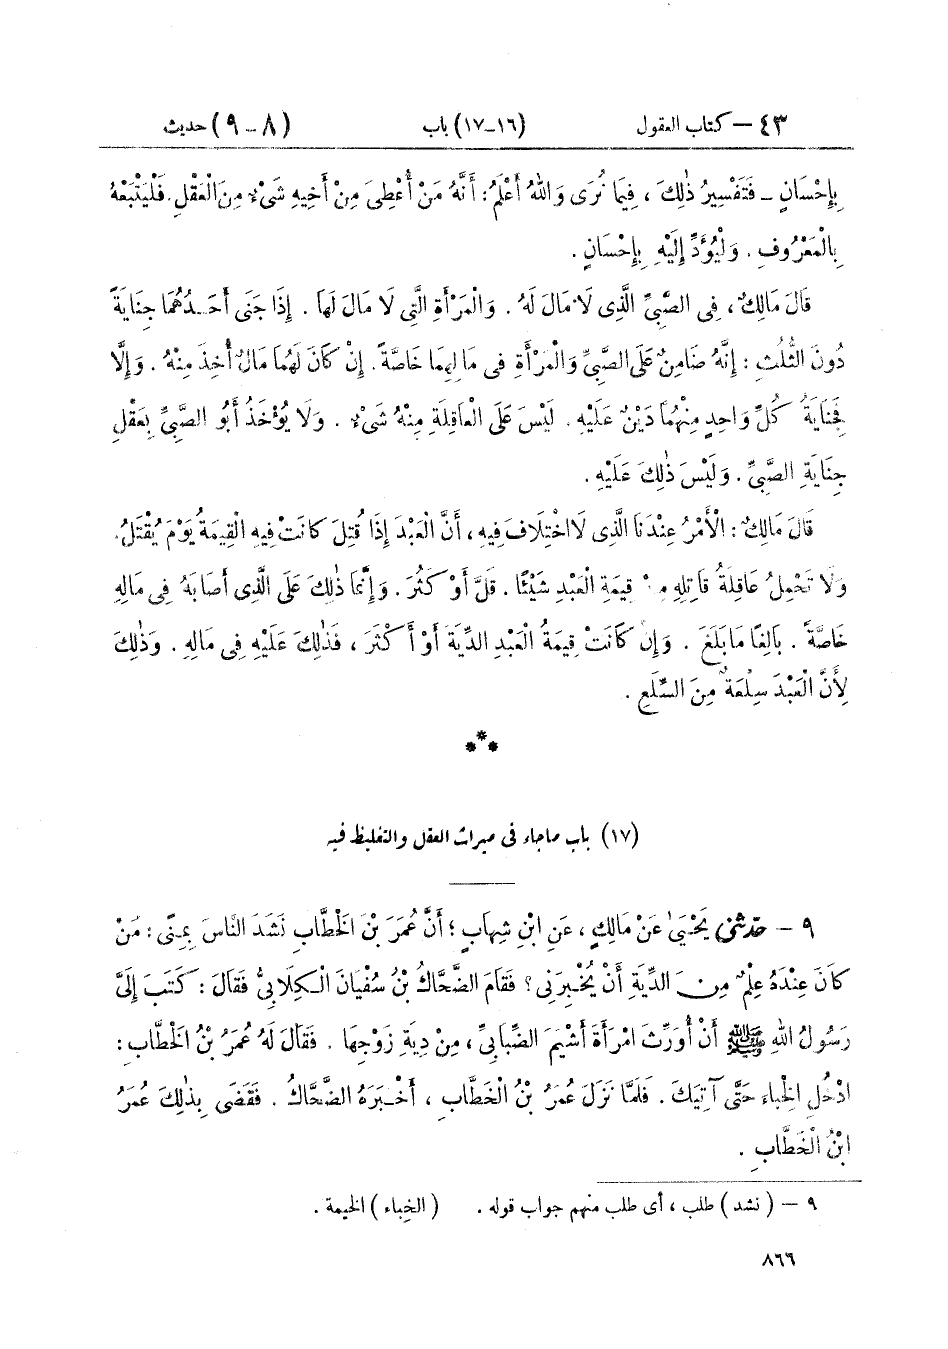 ٤٣ – كتاب العقول (١٦-١٧) باب (٨ - ٩) حديث
بِإِحْسَانٍ – فَتَفْسِيرُ ذٰلِكَ ، فِيمَا نُرَى وَاللهُ أَعْلَمُ : أَنَّهُ مَنْ أُعْطِىَ مِنْ أَخِيهِ شَىْءٌ مِنَ الْعَقْلِ. فَلْيَتْبَعْهُ
بِالْمَعْرُوفِ . وَلْيُؤَدِّ إِلَيْهِ بِإِحْسَانٍ .
قَالَ مَالِكٌ ، فِى الصَّبِىِّ الَّذِى لَا مَالَ لَهُ . وَالْمَرْأَةِ الَّتِى لَا مَالَ لَهَا . إِذَا جَنَى أَحَدُهُمَا جِنَايَةً
دُونَ الثُّلُثِ : إِنَّهُ ضَامِنٌ عَلَى الصَّبِىِّ وَالْمَرْأَةِ فِى مَالِهِمَا خَاصَّةً. إِنْ كَانَ لَهُمَا مَالٌ أُخِذَ مِنْهُ . وَإِلَّا
فَجِنَايَةُ كُلِّ وَاحِدٍ مِنْهُمَا دَيْنٌ عَلَيْهِ. لَيْسَ عَلَى الْعَاقِلَةِ مِنْهُ شَىْءٌ . وَلَا يُؤْخَذُ أَبُو الصَّبِىِّ بِعَقْلِ
جِنَايَةِ الصَّبِىِّ . وَلَيْسَ ذٰلِكَ عَلَيْهِ .
قَالَ مَالِكٌ : الْأَمْرُ عِنْدَنَا الَّذِى لَا اخْتِلَافَ فِيهِ ، أَنَّ الْعَبْدَ إِذَا قُتِلَ كَانَتْ فِيهِ الْقِيمَةُ يَوْمَ يُقْتَلُ.
وَلَا تَحْمِلُ عَاقِلَةُ قَاتِلِهِ مِنْ قِيمَةِ الْعَبْدِ شَيْئًا . قَلَّ أَوْ كَثُرَ . وَإِنَّمَا ذٰلِكَ عَلَى الَّذِى أَصَابَهُ فِى مَالِهِ
خَاصَّةً . بَالِغًا مَا بَلَغَ . وَإِنْ كَانَتْ قِيمَةُ الْعَبْدِ الدِّيَةَ أَوْ أَكْثَرَ ، فَذٰلِكَ عَلَيْهِ فِى مَالِهِ . وَذٰلِكَ
لِأَنَّ الْعَبْدَ سِلْعَةٌ مِنَ السِّلَعِ .
***
(١٧) باب ماجاء فى ميراث العقل والتغليظ فيه
٩ – حَدَّثَنِى يَحْيَىٰ عَنْ مَالِكٍ ، عَنِ ابْنِ شِهَابٍ ؛ أَنَّ عُمَرَ بْنَ الْخَطَّابِ نَشَدَ النَّاسَ بِمِنًى : مَنْ
كَانَ عِنْدَهُ عِلْمٌ مِنَ الدِّيَةِ أَنْ يُخْبِرَنِى ؟ فَقَامَ الضَّحَّاكُ بْنُ سُفْيَانَ الْكِلَابِىُّ فَقَالَ : كَتَبَ إِلَىَّ
رَسُولُ اللهِ ﷺ أَنْ أُوَرِّثَ امْرَأَةَ أَشْيَمَ الضِّبَابِىِّ ، مِنْ دِيَةِ زَوْجِهَا . فَقَالَ لَهُ عُمَرُ بْنُ الْخَطَّابِ :
ادْخُلِ الْخِبَاءَ حَتَّى آتِيَكَ . فَلَمَّا نَزَلَ عُمَرُ بْنُ الْخَطَّابِ ، أَخْبَرَهُ الضَّحَّاكُ . فَقَضَى بِذٰلِكَ عُمَرُ
ابْنُ الْخَطَّابِ .
٩ – ( نشد ) طلب ، أى طلب منهم جواب قوله . ( الخِباء ) الخيمة .
٨٦٦